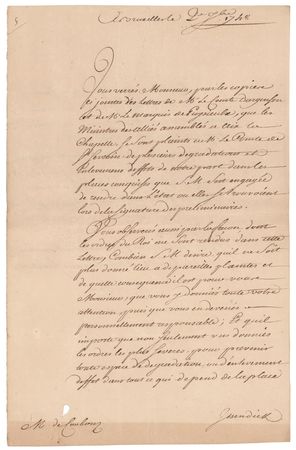 A Bruxelles le 2e 7bre 1748
Vous verrés, Monsieur, par les copies
cy jointes des lettres de M. Le Comte Dargenson
et de M. Le Marquis de Puysieulx, que les
Ministres des alliés assemblés a Aix la
Chapelle se sont plaints en M. Le Comte de
St Severin de plusieurs degradations et
Enlevemens d'effets de notre part dans les
places conquises que S. M. s'est engagé
de rendre dans l'état ou elles se trouvoient
lors de la signature des preliminaires.
Vous observerés aussi par la façon dont
les ordres du Roi me sont rendus dans cette
lettre, Combien S. M. desire qu'il ne soit
plus donné lieu a de pareilles plaintes et
de quelle consequence il est pour vous
Monsieur, que vous y donniés toute votre
attention, puis que vous en devenés
personnellement responsable; Et qu'il
importe que non seulement vous donniés
les ordres les plus severes pour prevenir
toute espece de degradation, ou d'enlevement
d'effets dans tout ce qui depend de la place
M. de